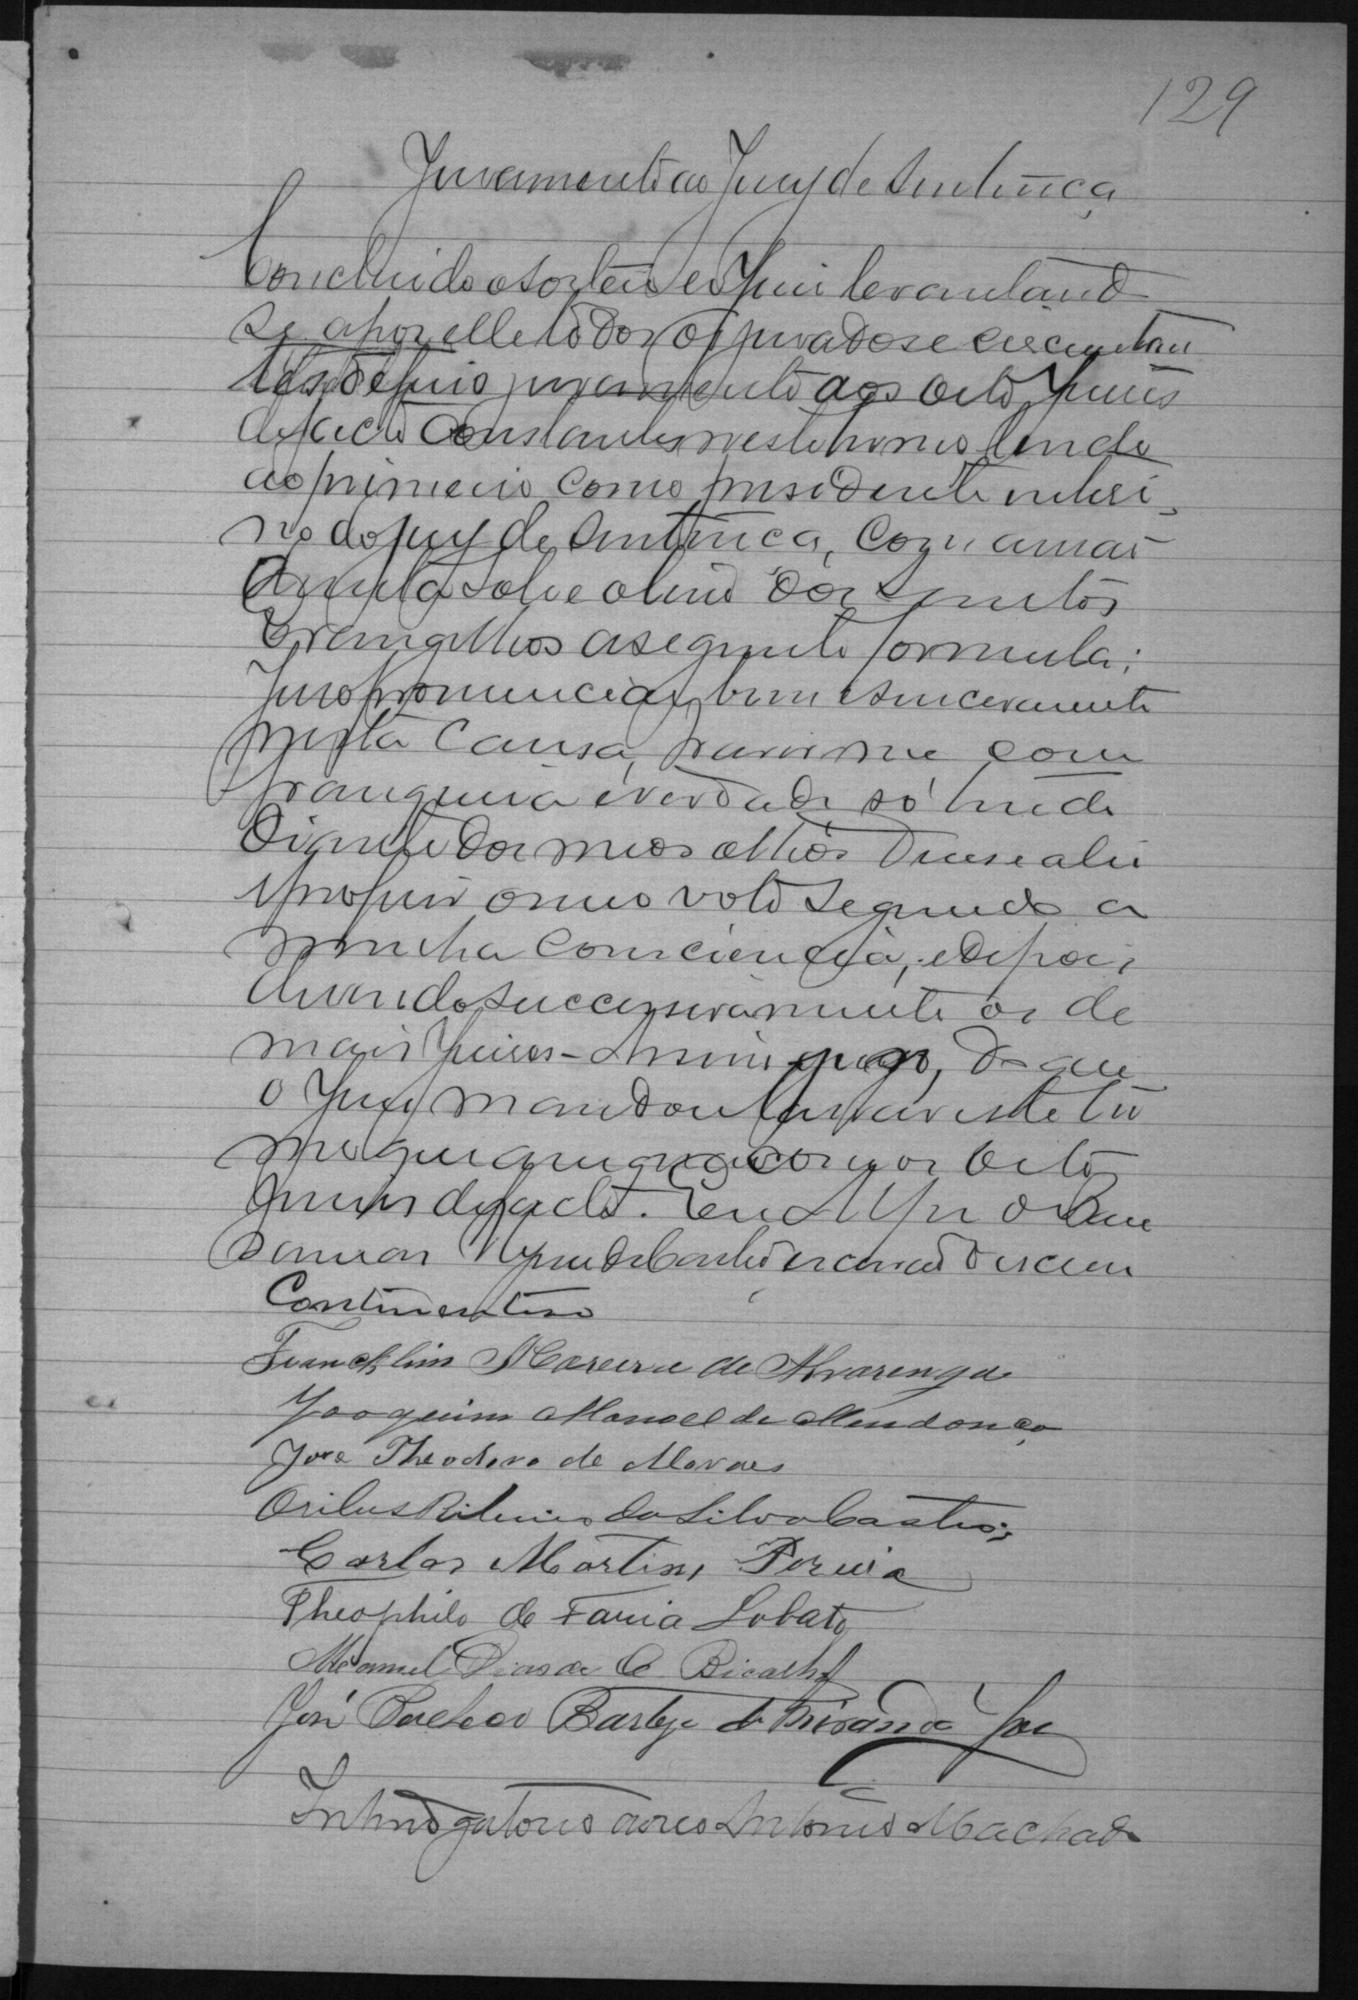 129
Juramento ao Jury de Sentença
Concluido o sorteio e o Juiz levantand
se apor elle todos os jurados e circunstan
tes deferio juramento aos oito Juizes
de facto constantes neste termo lendo
ao primeiro como presidente interi
no do jury de Sentença, com a mão
direita sobre o livro dos Santos
Evangelhos a seguinte formula:
Juro pronunciar bem e sinceramente
nesta causa, haver-me com
franqueza e verdade só tendo
diante dos meos olhos Deus e a lei
e proferir o meu voto segundo a
minha consciencia, e depois
chamando successivamente os de
mais Juizes - Assim o juro, do que
o Juiz mandou lavrar este ter
mo que assigna com os oito
Juizes de facto. Eu
escrivão o escrevi
Continentino
Francklim Moreira de Alvarenga
Joaquim Manoel de Mendonça
José Theodoro de Moraes
Ribeiro da Silva Castro
Carlos Martins Pereira
Theophilo de Faria Lobato
Manuel Dias de C. Bicalho
José Pacheco de Miranda Jor
Interrogatorio ao reo Antonio Machado